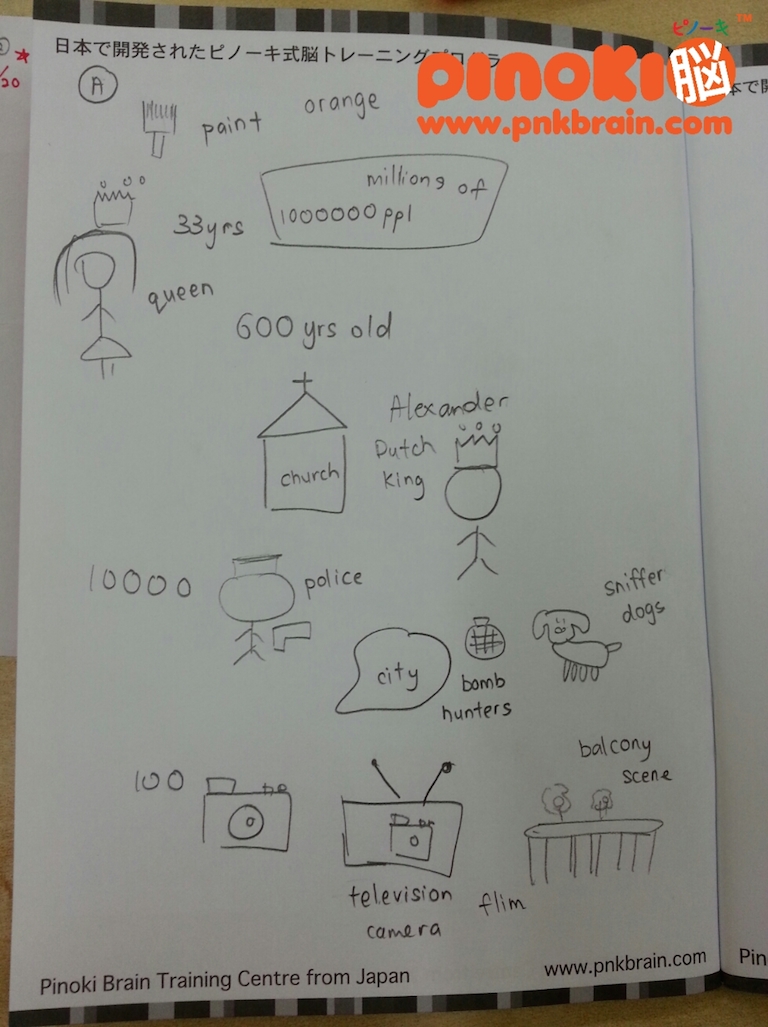 日本で開発されたピノーキ式脳トレーニングプログラ
ピノーキ
TM
pinoki脳
www.pnkbrain.com
A
paint
orange
33yrs
millions of
1000000 ppl
queen
600 yrs old
church
Alexander
Dutch
King
10000
police
sniffer
dogs
city
bomb
hunters
100
balcony
scene
television
camera
flim
Pinoki Brain Training Centre from Japan
www.pnkbrain.com
Pin